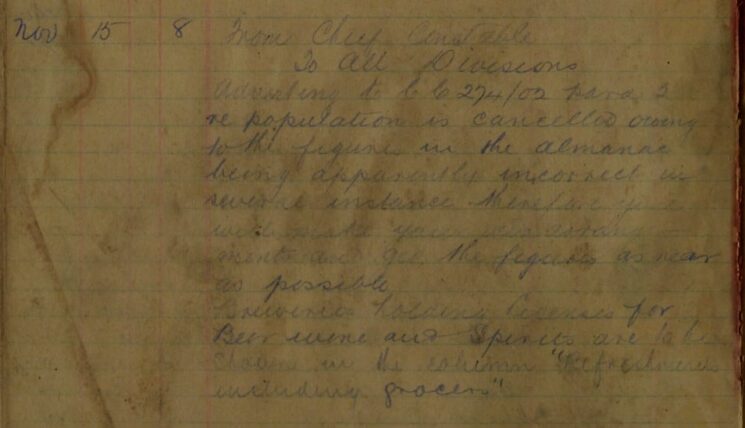 Nov 15 8 From Chief Constable
To All Divisions
Adverting to C C 274/02 para 3
re population is cancelled owing
to the figures in the almanac
being apparently incorrect in
several instance therefore you
will make your own arrange
ments and get the figures as near
as possible
Breweries holding licenses for
Beer wine and Spirits are to be
shown in the column "Refreshments
including grocers"